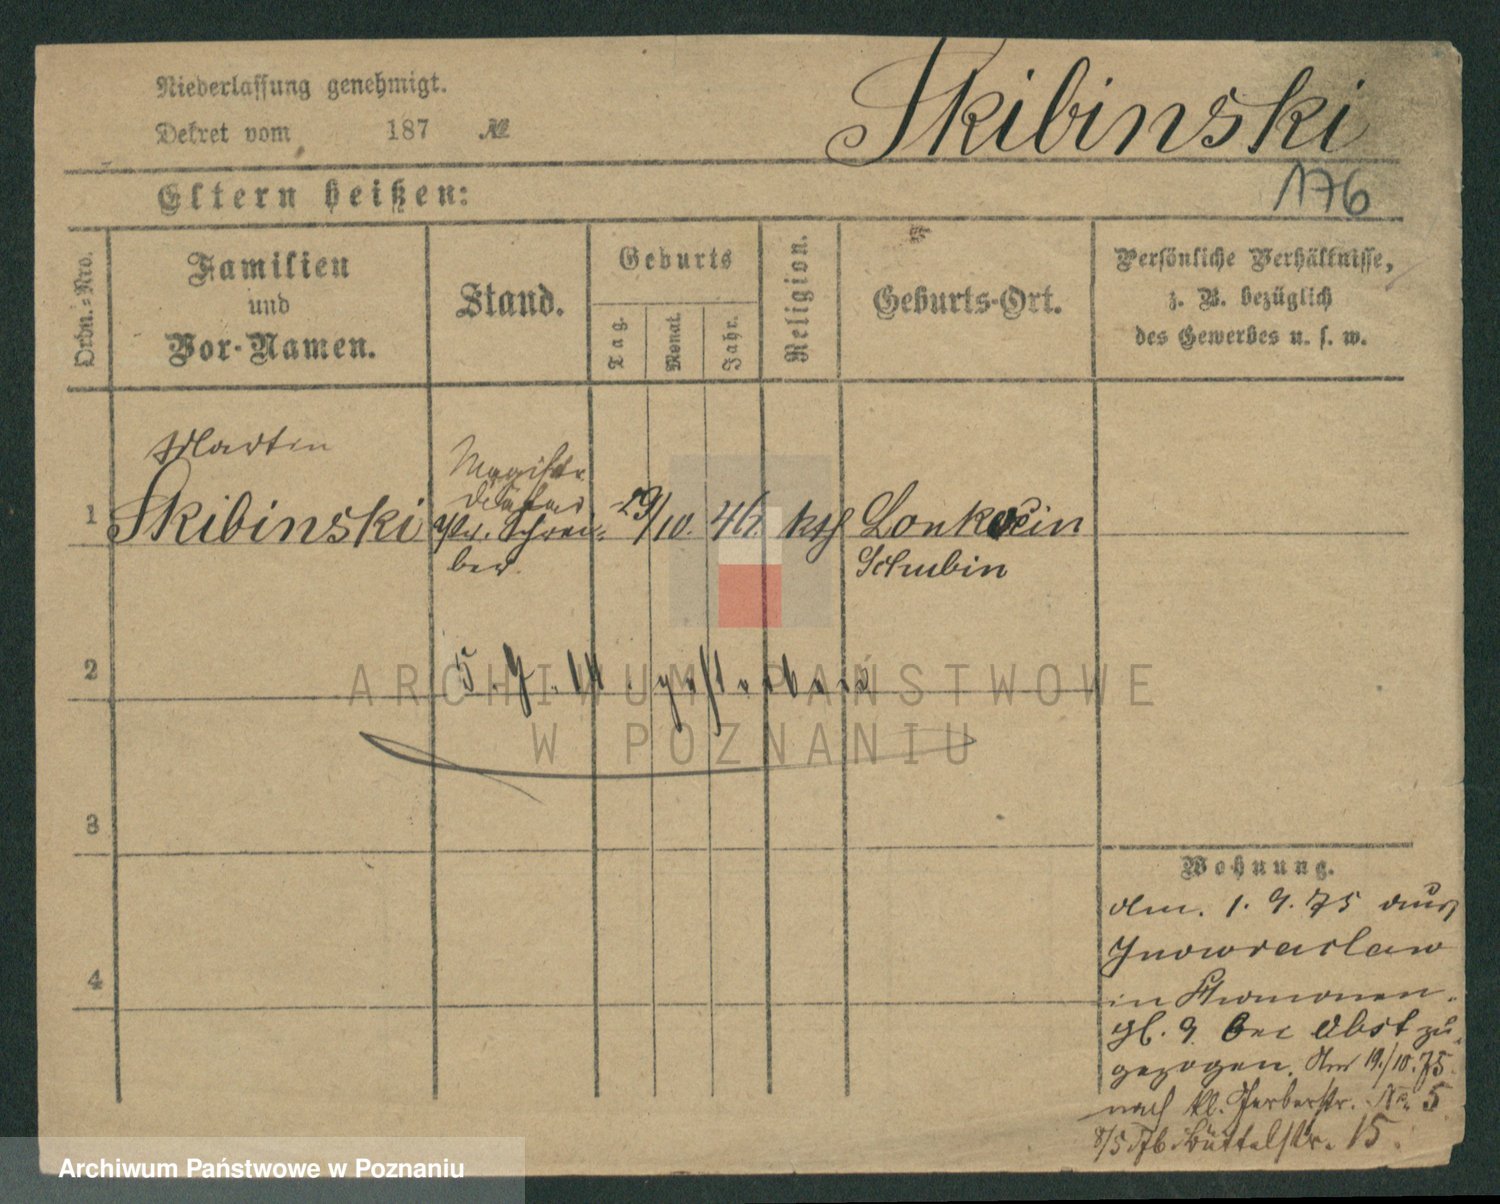 Niederlassung genehmigt.
Dekret vom 187 №
Skibinski
176
Eltern heißen:
Ordn.-Nro.
Familien
und
Vor-Namen.
Stand.
Geburts
Tag.
Monat.
Jahr.
Religion.
Geburts-Ort.
Persönliche Verhältnisse,
z. B. bezüglich
des Gewerbes u. s. w.
Martin
1 Skibinski
Magistr.
Diätar
Schrei-
ber.
29/10. 46. kth Lonkocin
Schubin
2
gestorben
ARCHIWUM PAŃSTWOWE
W POZNANIU
3
Wohnung.
Am. 1. 9. 75 aus
Inowraclaw
in
4
gl. 9 bei Abst zu-
gezogen. Am 19./10. 75.
nach kl. Gerberstr. No. 5
8/5 76 Büttelstr. 15.
Archiwum Państwowe w Poznaniu